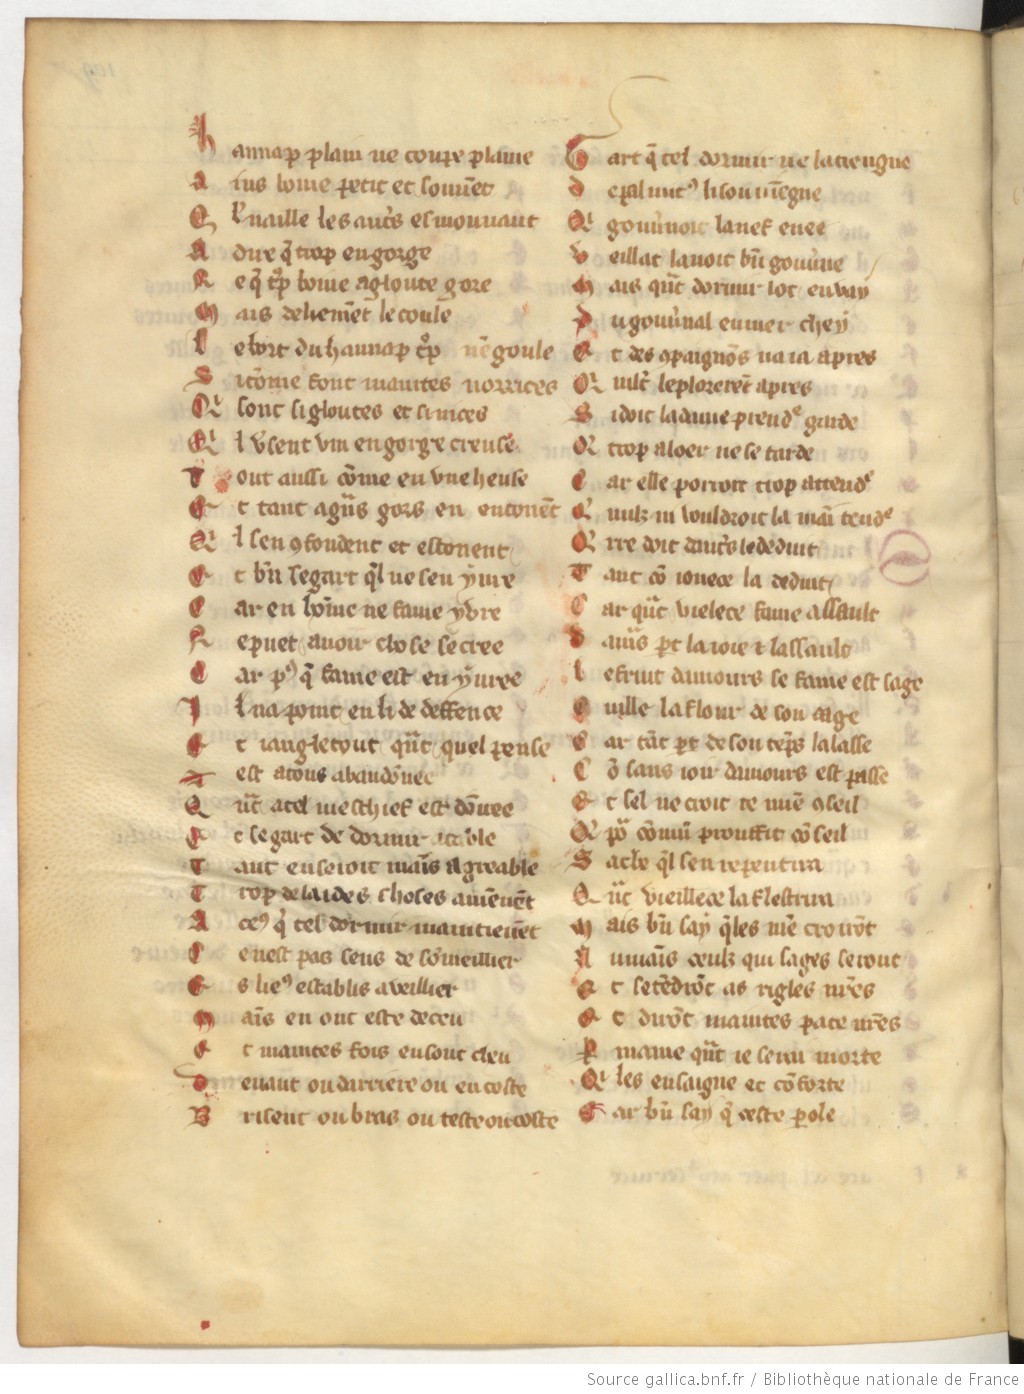 hannap plain ne coupe plaine
Ains boiue petit et souuēt
Ql' naille les autr̄s esmouuant
A dire q̄ trop engorge
Ne q̄ tͬp boiue a gloute gore
Mais delieem̄ēt le coule
Le bort du hannap tͬp nēgoule
Si cōme font maintes norrices
Q sont si gloutes et si nices
Ql v̾sent vin en gorge creuse
Tout aussi cōme en vne heuse
Et tant a gn̄s gors en entonēt
Ql sen ꝯfondent et estonent
Et bn̄ se gart ql̄ ne sen yure
Car en hōme ne fame yure
Ne puet auoir chose secree
Car pꝰ q̄ fame est enyuree
Il na point en li de deffence
Et iangle tout qn̄t quel pense
est a tous abandōnee
Qn̄t a tel meschief est dōnee
Et se gart de dormir a table
Tant en seroit mais̄ agreable
Trop de laides choses auiēnēt
A ceꝰ q̄ tel dormir maintienēt
Ce nest pas sens de sōmeillier
Es lieꝰ establis a veillier
Mais̄ en ont este deceu
Et maintes fois en sont cheu
Deuant ou dirriere ou en coste
Brisent ou bras ou teste ou coste
Gart q̄ tel dormir ne la tiengne
De palinurꝰ li souuiēgne
Q gouu̾noit la nef enee
Veillāt lauoit bn̄ gouu̾ne
Mais qn̄t dormir lot enuay
Du gouu̾nal en mer chey
Et des ꝯpaignōs naia apres
Q mlt̄ le plorerēt apres
Si doit la dame prendͤ garde
Q trop a loer ne se tarde
Car elle porroit trop attendͤ
Q nulz ni vouldroit la mai tendͤ
Qrre doit damr̄s le deduit
Tant cō ionece la deduit
Car qn̄t vielece fame assault
Damr̄s pt̄ la ioie ⁊ lassault
Le fruit damours se fame est sage
Cuille la flour de son aage
Car tāt pt̄ de son tēps la lasse
Cō sans ioir damours est passe
Et sel ne croit ce miē ꝯseil
Q po᷑ cōmu᷑ prouffit cōseil
Sache ql̄ sen repentira
Qn̄t vieillece la flestrira
Mais bn̄ say q̄les mē crerōt
Aumais̄ ceulz qui sages serout
Et se tēdrōt as rigles nr̄es
Et dirōt maintes pate nr̄es
P mame qn̄t ie serai morte
Q les ensaigne et cōforte
Car bn̄ say q̄ ceste ꝑole
Source gallica.bnf.fr / Bibliothèque nationale de France